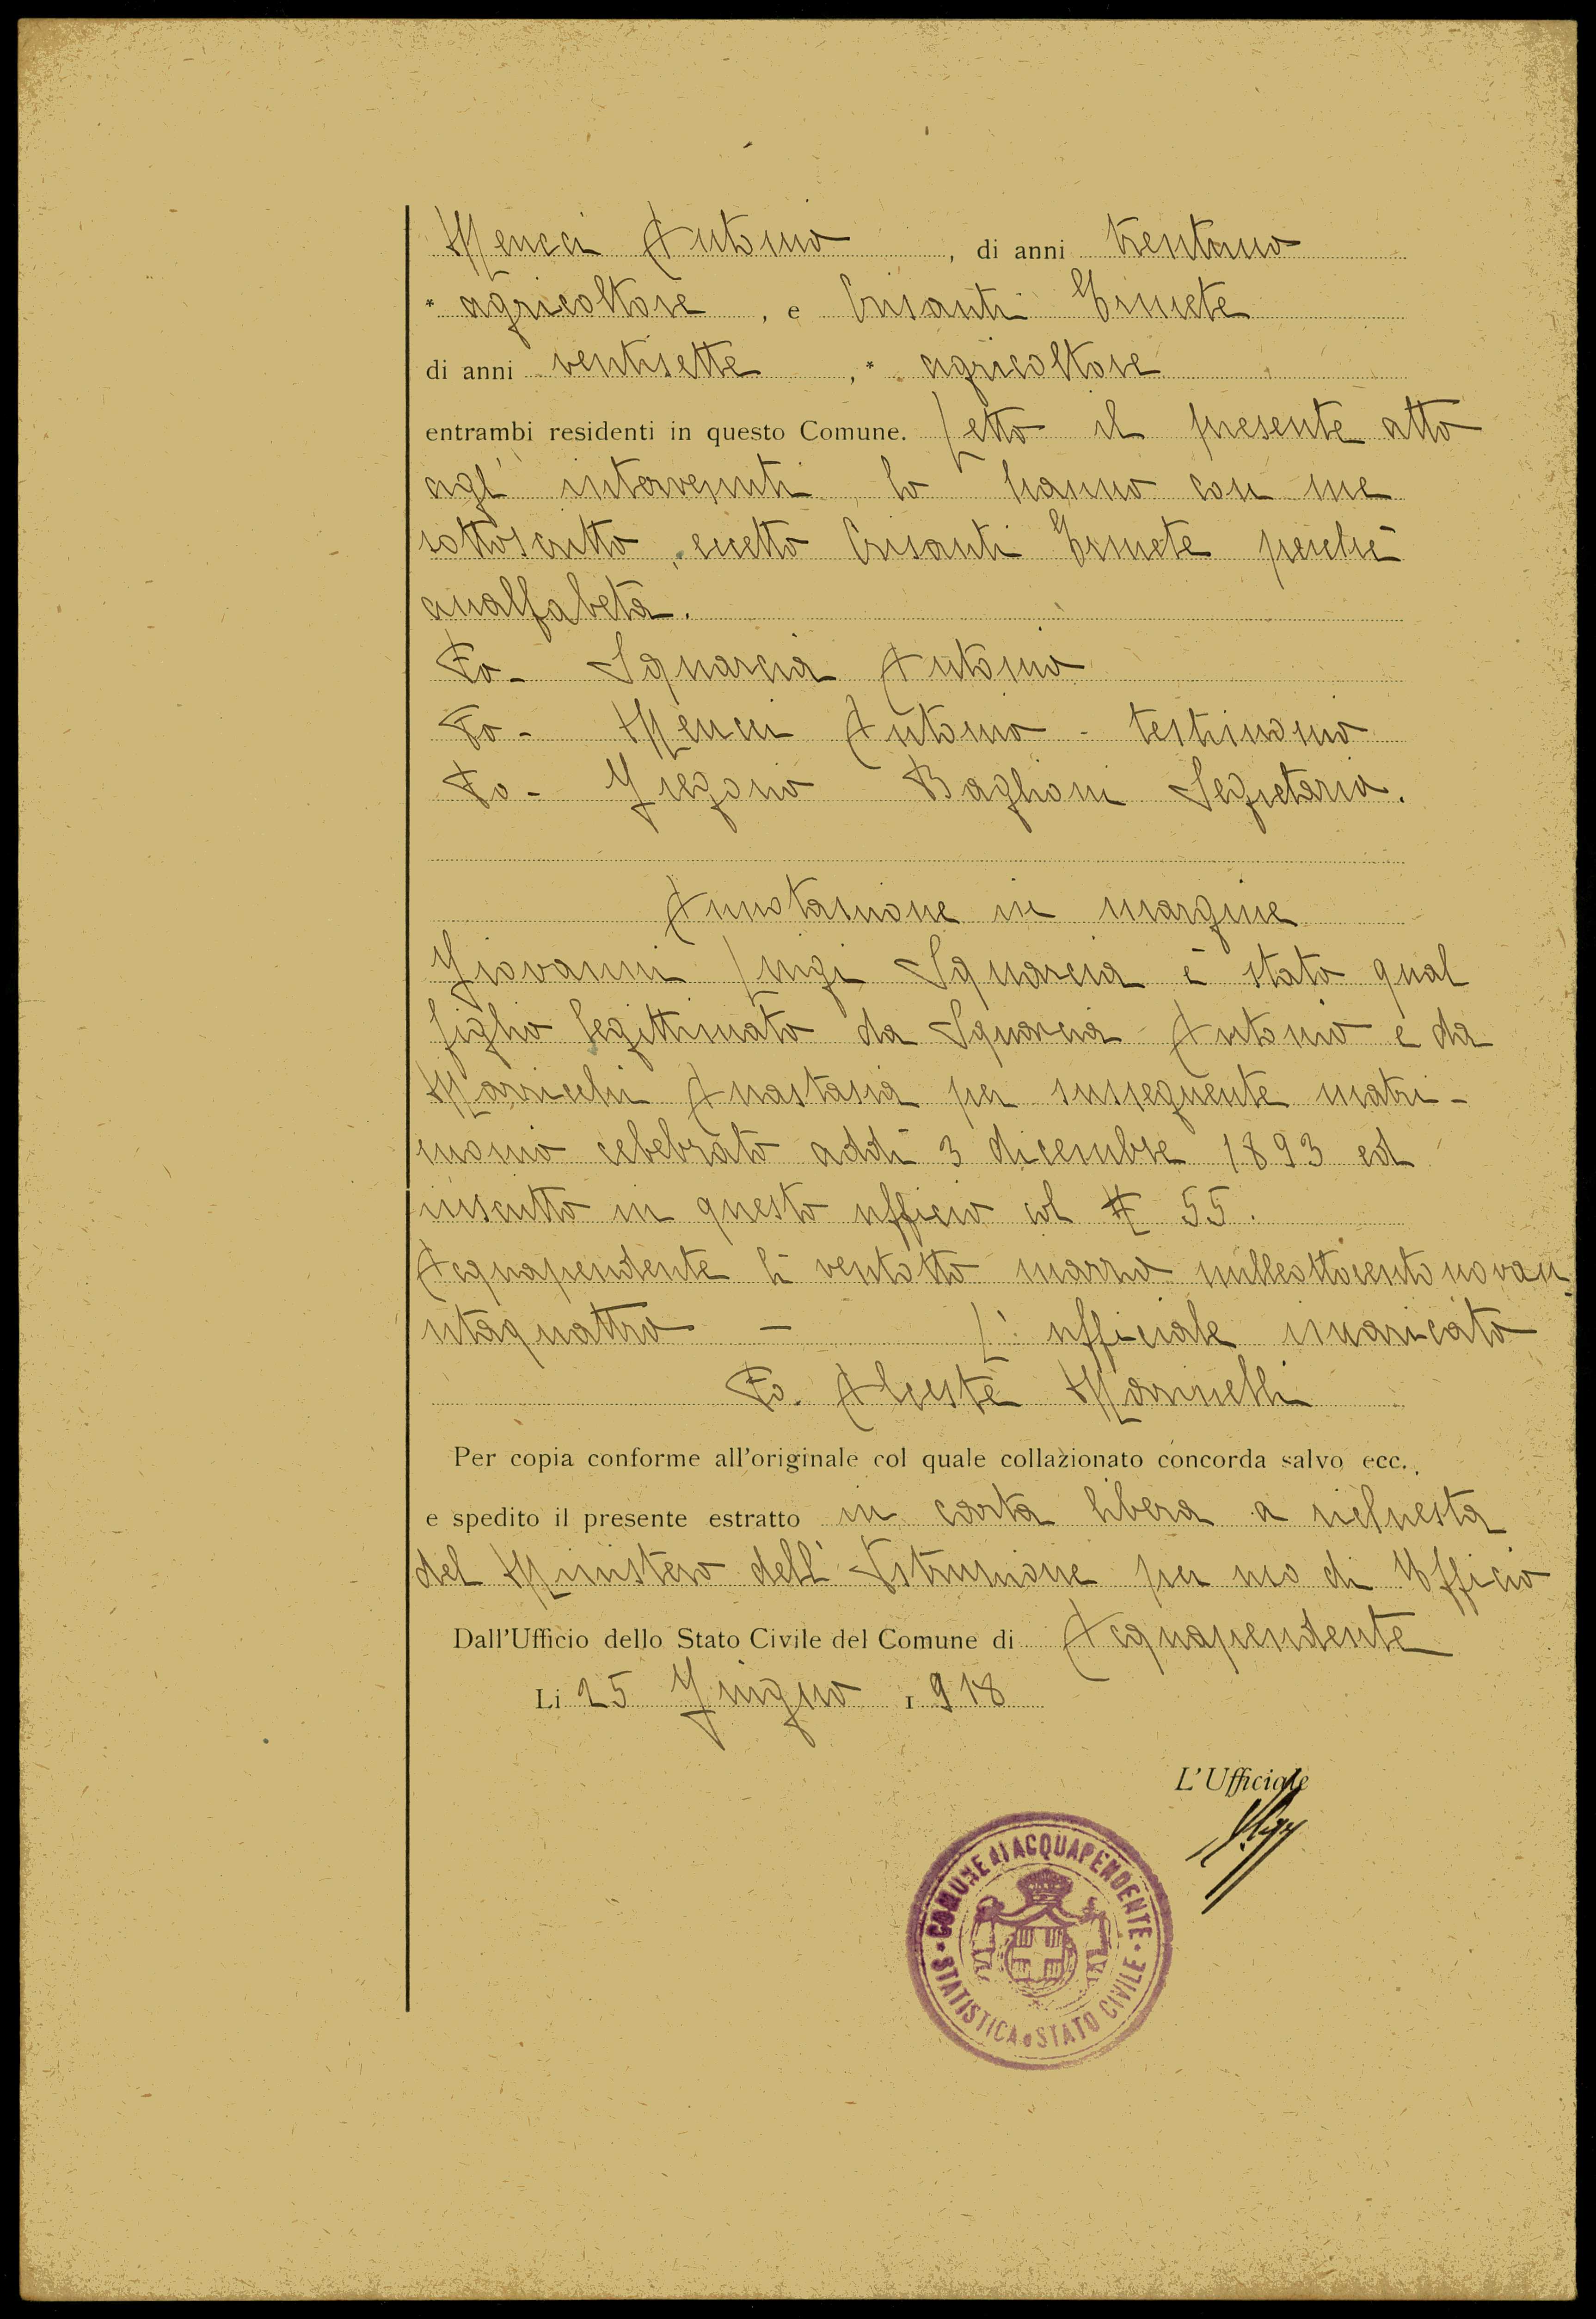 Mencci Antonio, di anni trentuno
* agricoltore, e Crisanti Ermete
di anni ventisette, * agricoltore
entrambi residenti in questo Comune. Letto il presente atto
agl' intervenuti lo hanno con me
sottoscritto, eccetto Crisanti Ermete perchè
analfabeta.
Fo- Squarcia Antonio
Fo- Mencci Antonio - testimonio
Fo- Gregorio Baglioni Segretario.
Annotazione in margine
Giovanni Luigi Squarcia è stato qual
figlio legittimato da Squarcia Antonio e da
Marricchi Anastasia per susseguente matri-
monio celebrato addì 3 dicembre 1893 ed
inscritto in questo ufficio col N 55.
Acquapendente li ventotto marzo milleottocentonovan-
ntaquattro - L' ufficiale incaricato
Fo. Alceste Marinelli
Per copia conforme all'originale col quale collazionato concorda salvo ecc.
e spedito il presente estratto in carta libera a richiesta
del Ministero dell' Istruzione per uso di Ufficio
Dall'Ufficio dello Stato Civile del Comune di Acquapendente
Li 25 Giugno 1918
L'Ufficiale
COMUNE di ACQUAPENDENTE
STATISTICA e STATO CIVILE